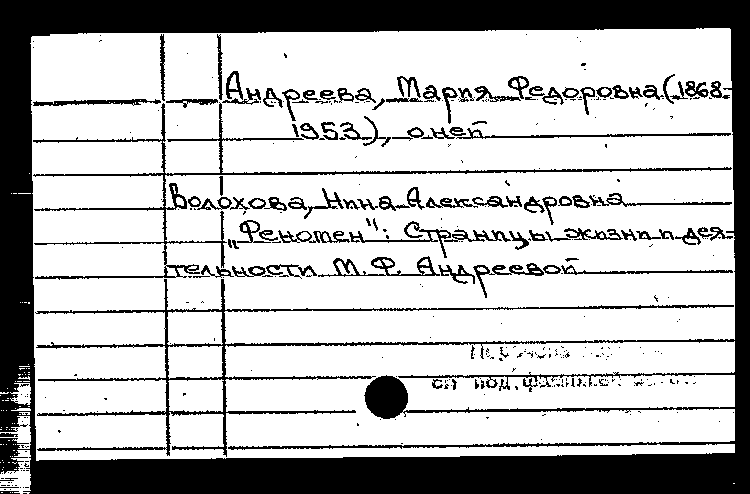 Андреева, Мария Федоровна (1868-
1953), о ней.
Волохова, Нина Александровна
„Феномен": Страницы жизни и дея-
тельности М. Ф. Андреевой.
под